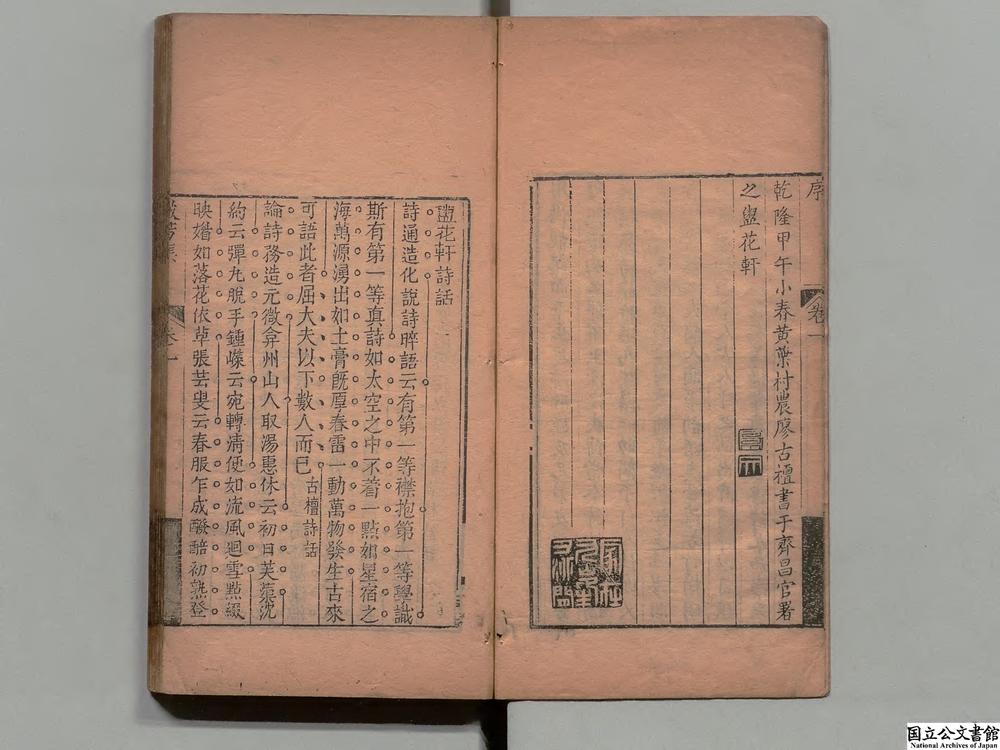 序
卷一
乾隆甲午小春黄葉村農廖古檀書于齊昌官署
之盥花軒
盥花軒詩話
詩通造化說詩晬語云有第一等襟抱第一等學識
斯有第一等真詩如太空之中不着一點如星宿之
海萬源湧出如土膏既厚春雷一動萬物發生古來
可語此者屈大夫以下數人而已古檀詩話
論詩務造元微弇州山人取湯惠休云初日芙蕖沈
約云彈丸脫手鍾嶸云宛轉清便如流風廻雪點綴
映媚如落花依草張芸叟云春服乍成醱醅初熟登
卷一
国立公文書館
National Archives of Japan